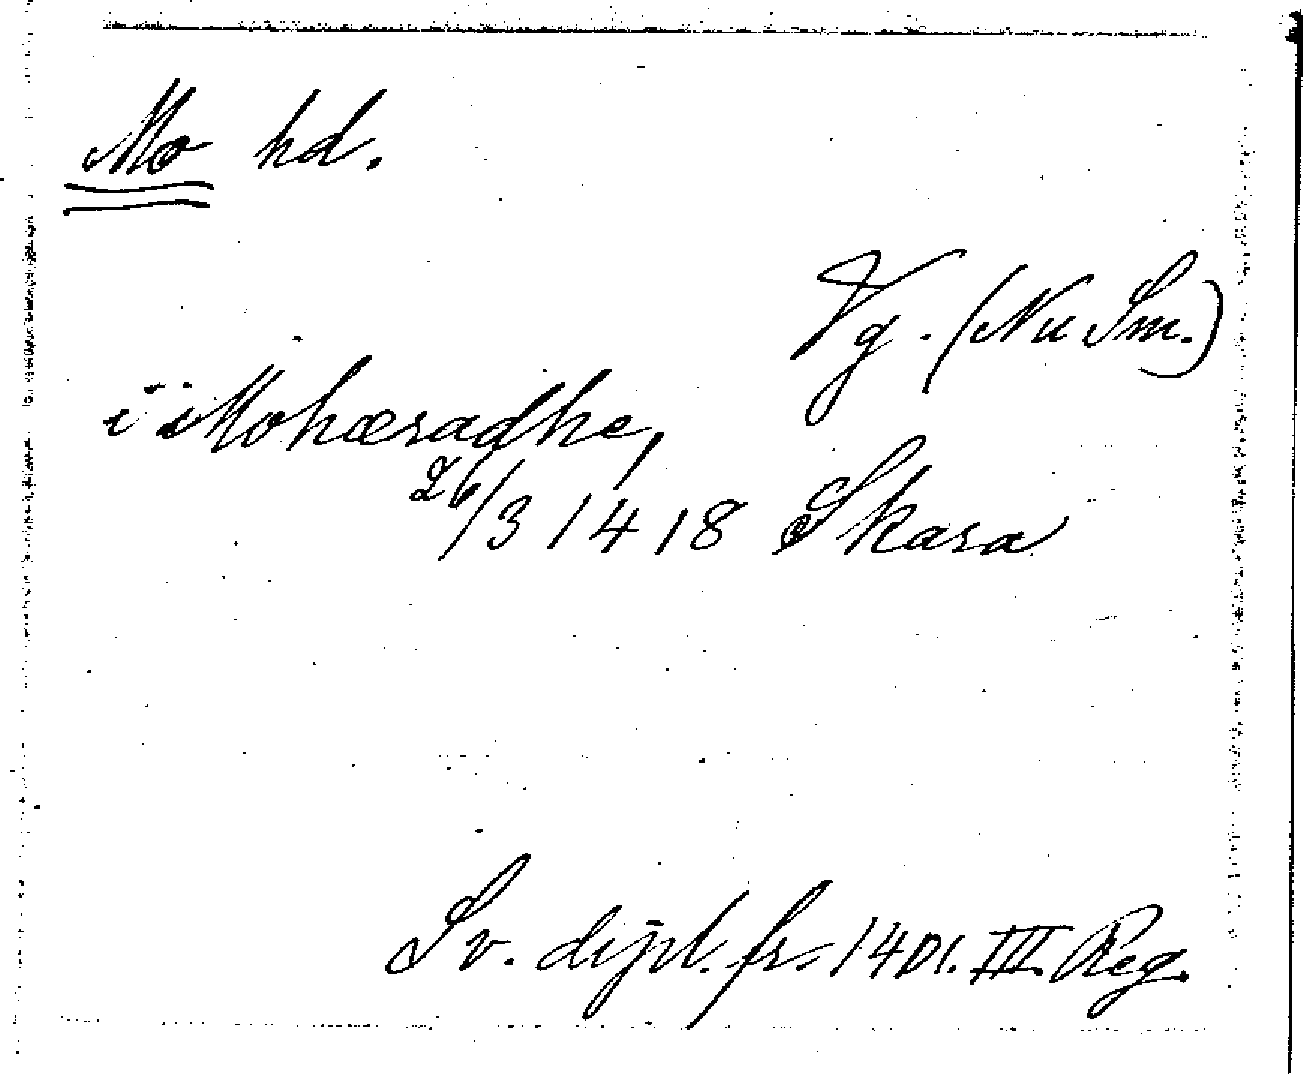 Mo hd.
Vg. (Nu Sm.)
i Mohæradhe,
26/3 1418 Skara
Sv. dipl. fr. 1401. III. Reg.